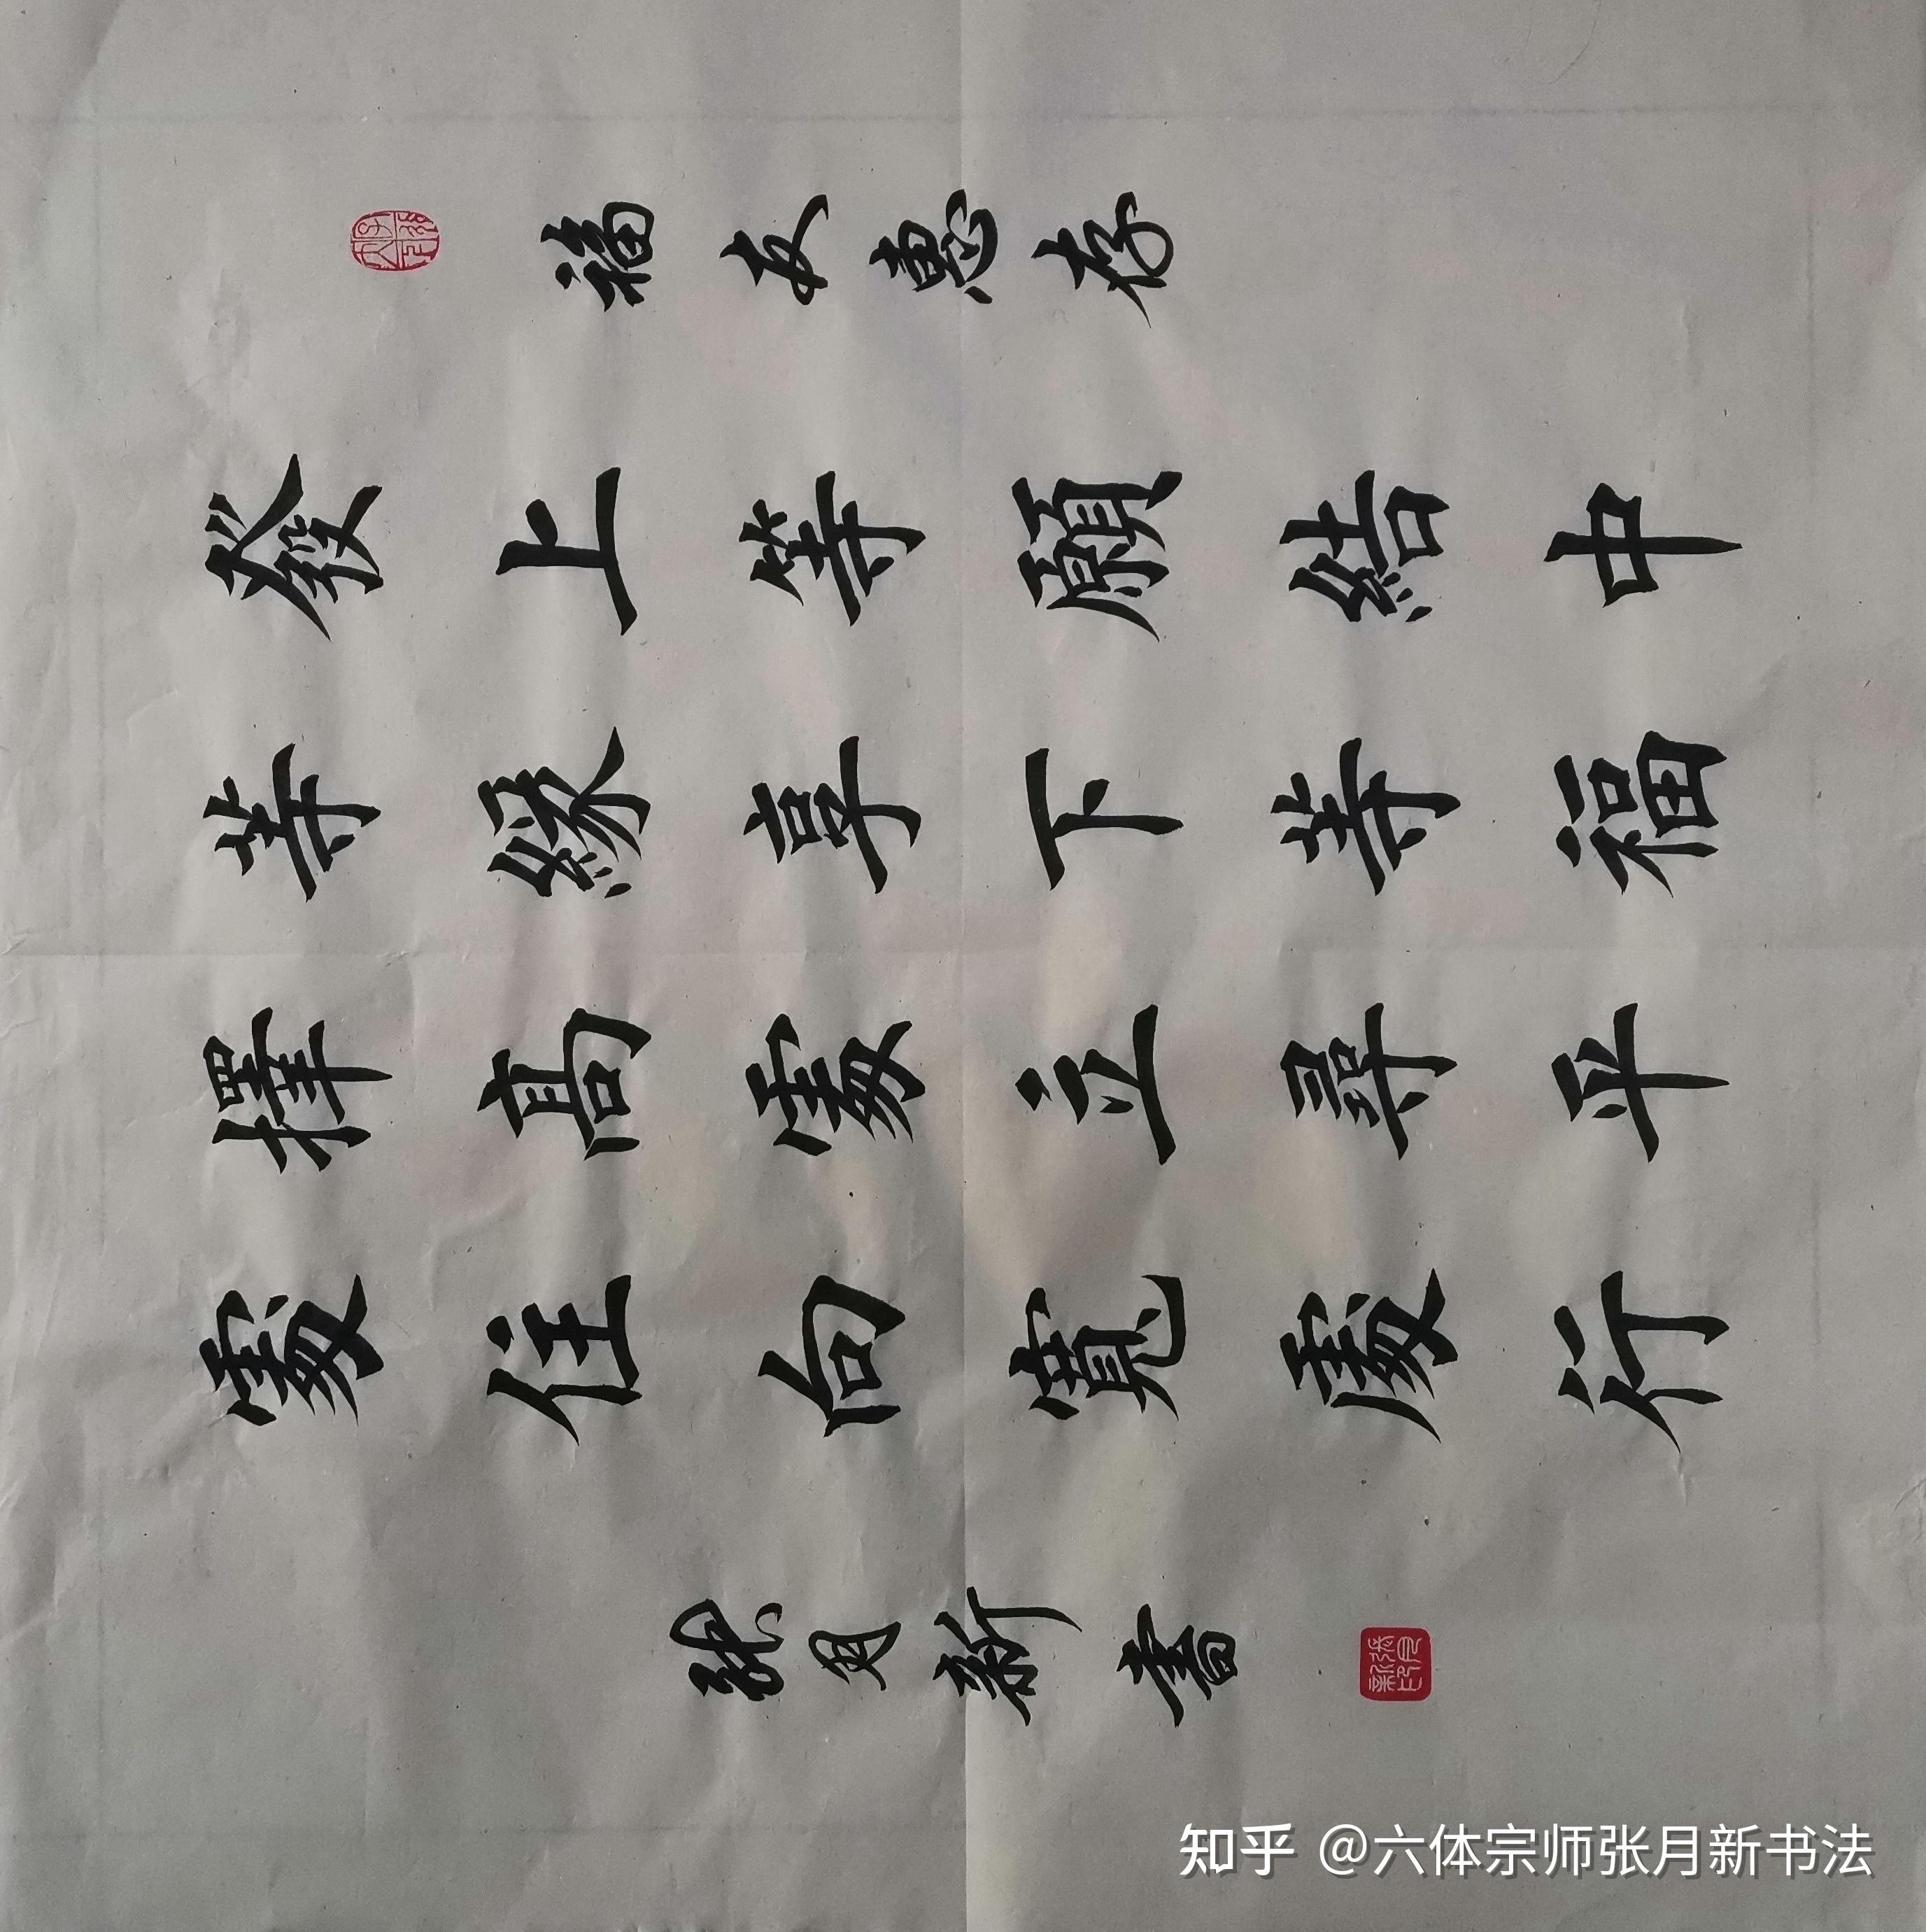 福友惠存
發上等願結中
等緣享下等福
擇高處立尋平
處住向寬處行
張月新書
知乎 @六体宗师张月新书法